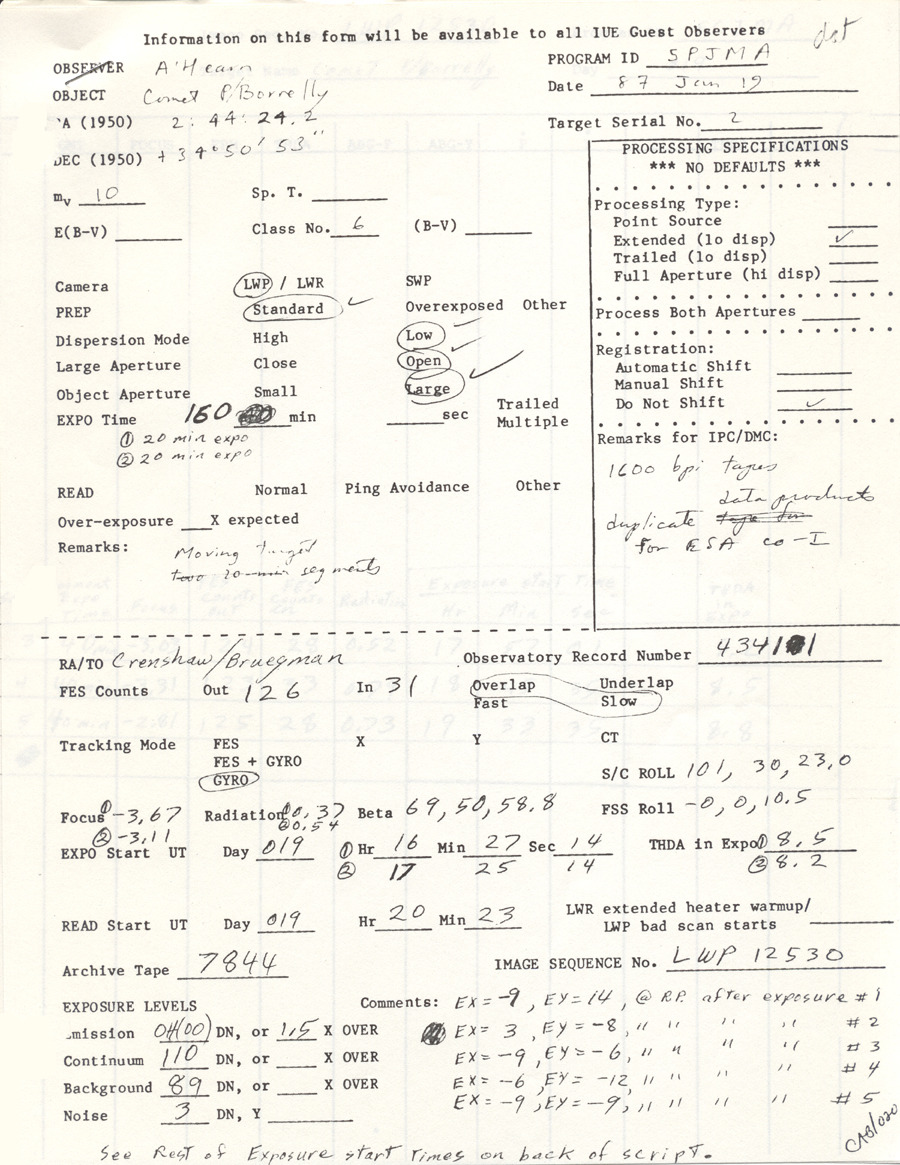 Information on this form will be available to all IUE Guest Observers
OBSERVER A'Hearn PROGRAM ID SPJMA
OBJECT Comet P/Borrelly Date 87 Jan 19
A (1950) 2: 44: 24.2 Target Serial No. 2
DEC (1950) + 34° 50' 53"
mv 10 Sp. T.
E(B-V) Class No. 6 (B-V)
Camera LWP / LWR SWP
PREP Standard ✓ Overexposed Other
Dispersion Mode High Low ✓
Large Aperture Close Open ✓
Object Aperture Small Large ✓
EXPO Time 160 min sec Trailed
Multiple
① 20 min expo
② 20 min expo
READ Normal Ping Avoidance Other
Over-exposure X expected
Remarks: Moving target
two 20-min segments
PROCESSING SPECIFICATIONS
*** NO DEFAULTS ***
Processing Type:
Point Source
Extended (lo disp) ✓
Trailed (lo disp)
Full Aperture (hi disp)
Process Both Apertures
Registration:
Automatic Shift
Manual Shift
Do Not Shift ✓
Remarks for IPC/DMC:
1600 bpi tapes
data products
duplicate tape for
for ESA co-I
RA/TO Crenshaw/Bruegman Observatory Record Number
FES Counts Out 126 In 31 Overlap Underlap
Fast Slow
Tracking Mode FES X Y CT
FES + GYRO
GYRO
S/C ROLL 101, 30, 23.0
Focus ① -3.67 Radiation ① 0.37 Beta 69, 50, 58.8 FSS Roll -0, 0, 10.5
② -3.11 ② 0.54
EXPO Start UT Day 019 ① Hr 16 Min 27 Sec 14 THDA in Expo ① 8.5
② 17 25 14 ② 8.2
READ Start UT Day 019 Hr 20 Min 23 LWR extended heater warmup/
LWP bad scan starts
Archive Tape 7844 IMAGE SEQUENCE No. LWP 12530
EXPOSURE LEVELS Comments: EX = -9, EY = 14, @ R.P. after exposure #1
mission OH(00) DN, or 1.5 X OVER EX = 3, EY = -8, " " " " #2
Continuum 110 DN, or X OVER EX = -9, EY = -6, " " " " #3
Background 89 DN, or X OVER EX = -6, EY = -12, " " " " #4
Noise 3 DN, Y EX = -9, EY = -9, " " " " #5
See Rest of Exposure start Times on back of script.